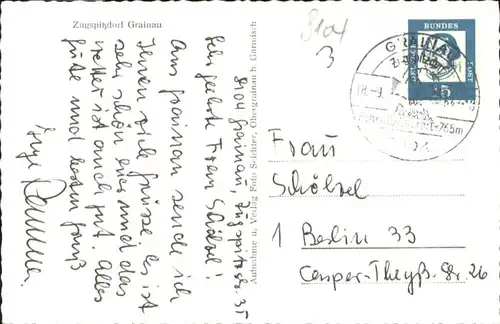 Zugspitzdorf Grainau
8104 Grainau, Zugspitzstr. 35
Sehr geehrte Frau Schölzel!
Aus Grainau sende ich
Ihnen viele Grüsse. Es ist
sehr schön hier und das
Wetter ist auch gut. Alles
Gute und besten Gruß
Aufnahme u. Verlag Foto Obergrainau b. Garmisch
8104
3
DEUTSCHE
BUNDES
POST
15
GRAINAU
18.-9.
Frau
Schölzel
1 Berlin 33
Caspar-Theyß-Str 26